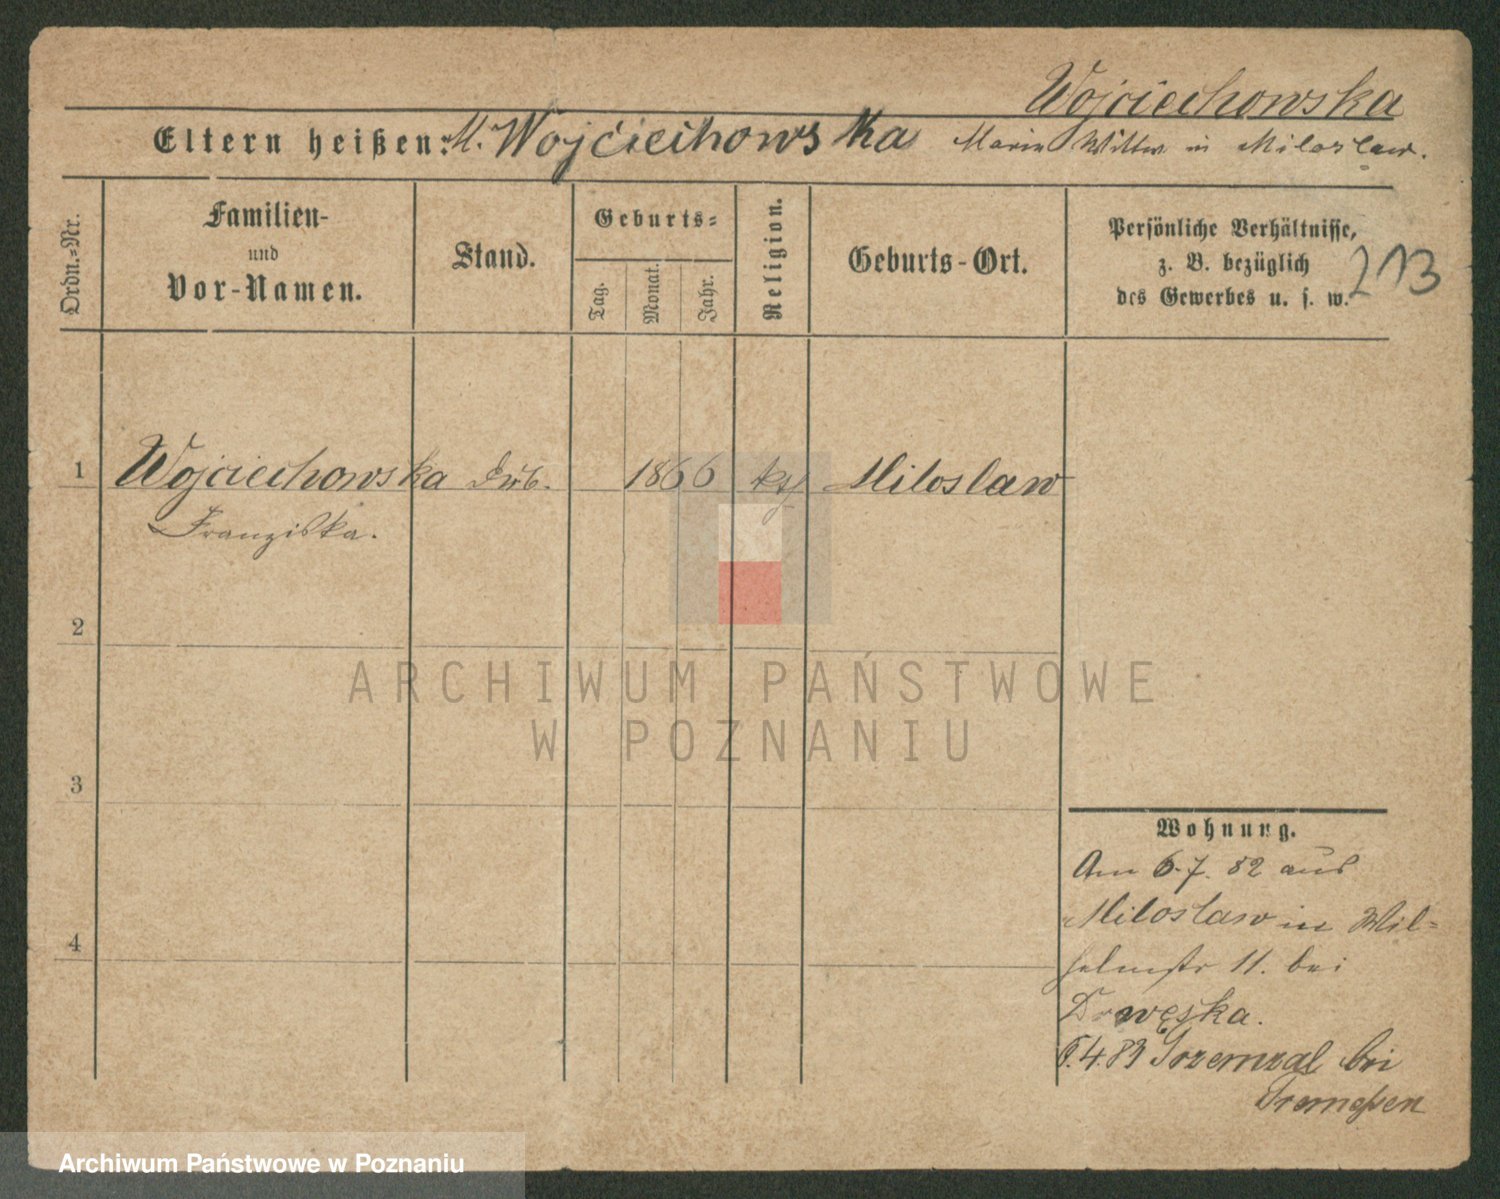 Wojciechowska
Eltern heißen: M. Wojciechowska Marie Wittwe in Miloslaw.
Ordn.-Nr.
Familien-
und
Vor-Namen.
Stand.
Geburts-
Tag.
Monat.
Jahr.
Religion.
Geburts-Ort.
Persönliche Verhältnisse,
z. B. bezüglich
des Gewerbes u. s. w.
213
1 Wojciechowska 1866 kth Miloslaw
Franziska.
2
3
4
Wohnung.
Am 6.7. 82 aus
Miloslaw in Wil-
helmstr 11. bei
Drwęska.
4. 83 bei
Tremessen
ARCHIWUM PAŃSTWOWE
W POZNANIU
Archiwum Państwowe w Poznaniu